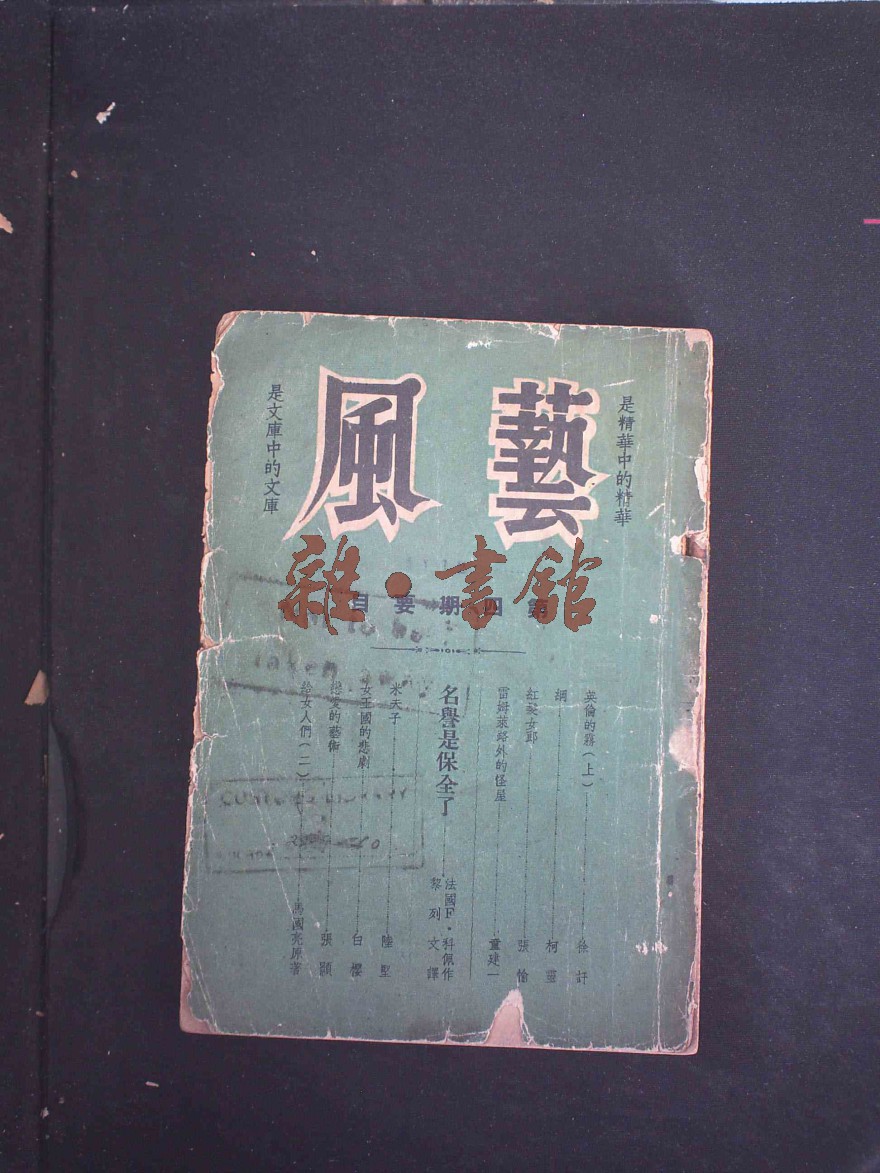 藝風
是精華中的精華
是文庫中的文庫
第四期要目
英倫的霧（上） 徐訏
網 柯靈
紅髮女郎 張愉
雷姆萊路外的怪屋 董建一
名譽是保全了 法國F·科佩作 黎列文譯
米天子 陸聖
女王國的悲劇 白櫻
戀愛的藝術 張顗
給女人們（二） 馬國亮原著
雜·書館